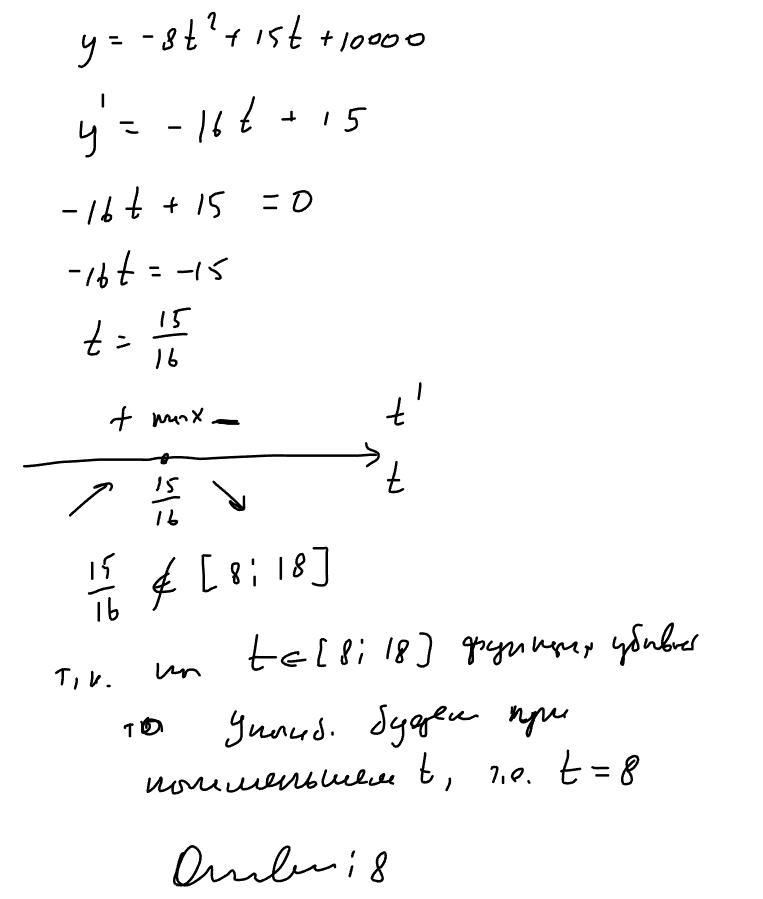 y = -8t² + 15t + 10000
y' = -16t + 15
-16t + 15 = 0
-16t = -15
t = 15/16
+ max - t'
15/16 t
15/16 ∉ [8; 18]
т.к. на t ∈ [8; 18] функция убывает
то yнаиб. будет при
наименьшем t, т.е. t = 8
Ответ: 8